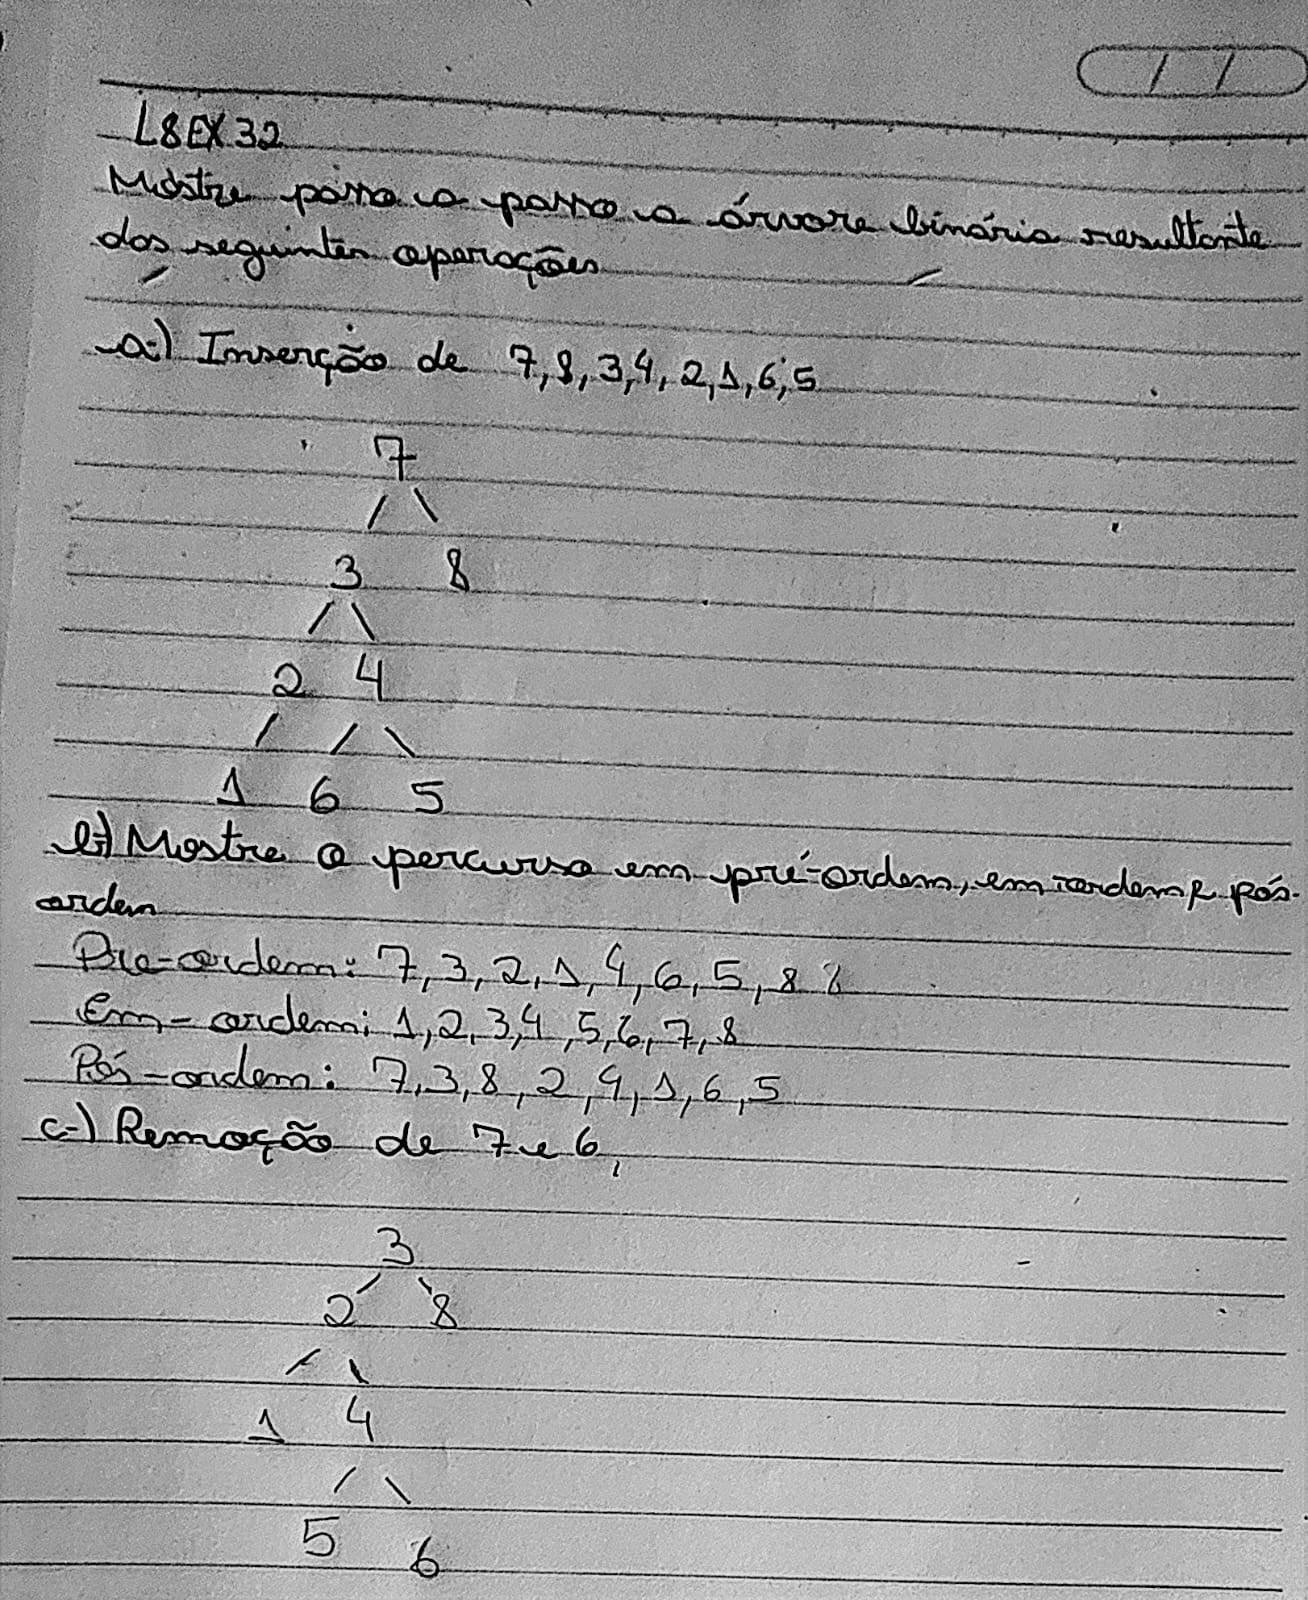 L8EX32
Mostre passo a passo a árvore binária resultante
das seguintes operações
a-) Inserção de 7, 8, 3, 4, 2, 1, 6, 5
7
/ \
3 8
/ \
2 4
/ / \
1 6 5
b-) Mostre o percurso em pré-ordem, em-ordem e pós-
ordem
Pre-ordem: 7, 3, 2, 1, 4, 6, 5, 8
Em-ordem: 1, 2, 3, 4, 5, 6, 7, 8
Pós-ordem: 7, 3, 8, 2, 4, 1, 6, 5
c-) Remoção de 7 e 6,
3
/ \
2 8
/ \
1 4
/ \
5 6